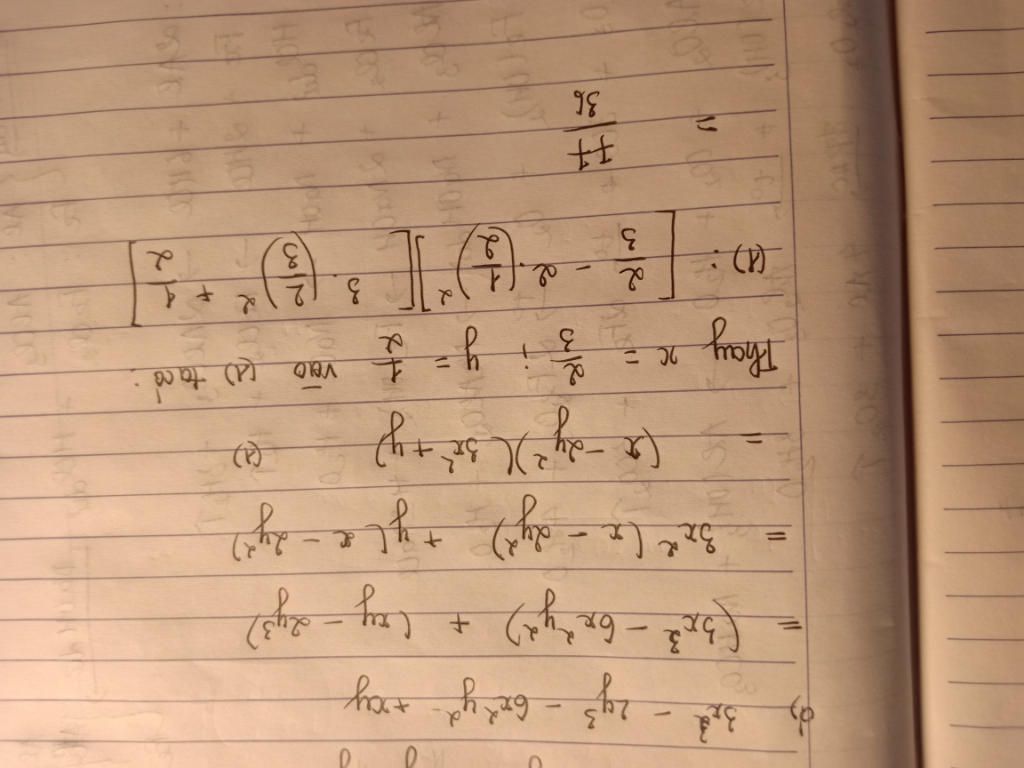 d) 3x³ - 2y³ - 6x²y² + xy
= (3x³ - 6x²y²) + (xy - 2y³)
= 3x² (x - 2y²) + y (x - 2y²)
= (x - 2y²)(3x² + y) (1)
Thay x = 2/3 ; y = 1/2 vào (1) ta có :
(1) : [2/3 - 2.(1/2)²][3.(2/3)² + 1/2]
= 11/36